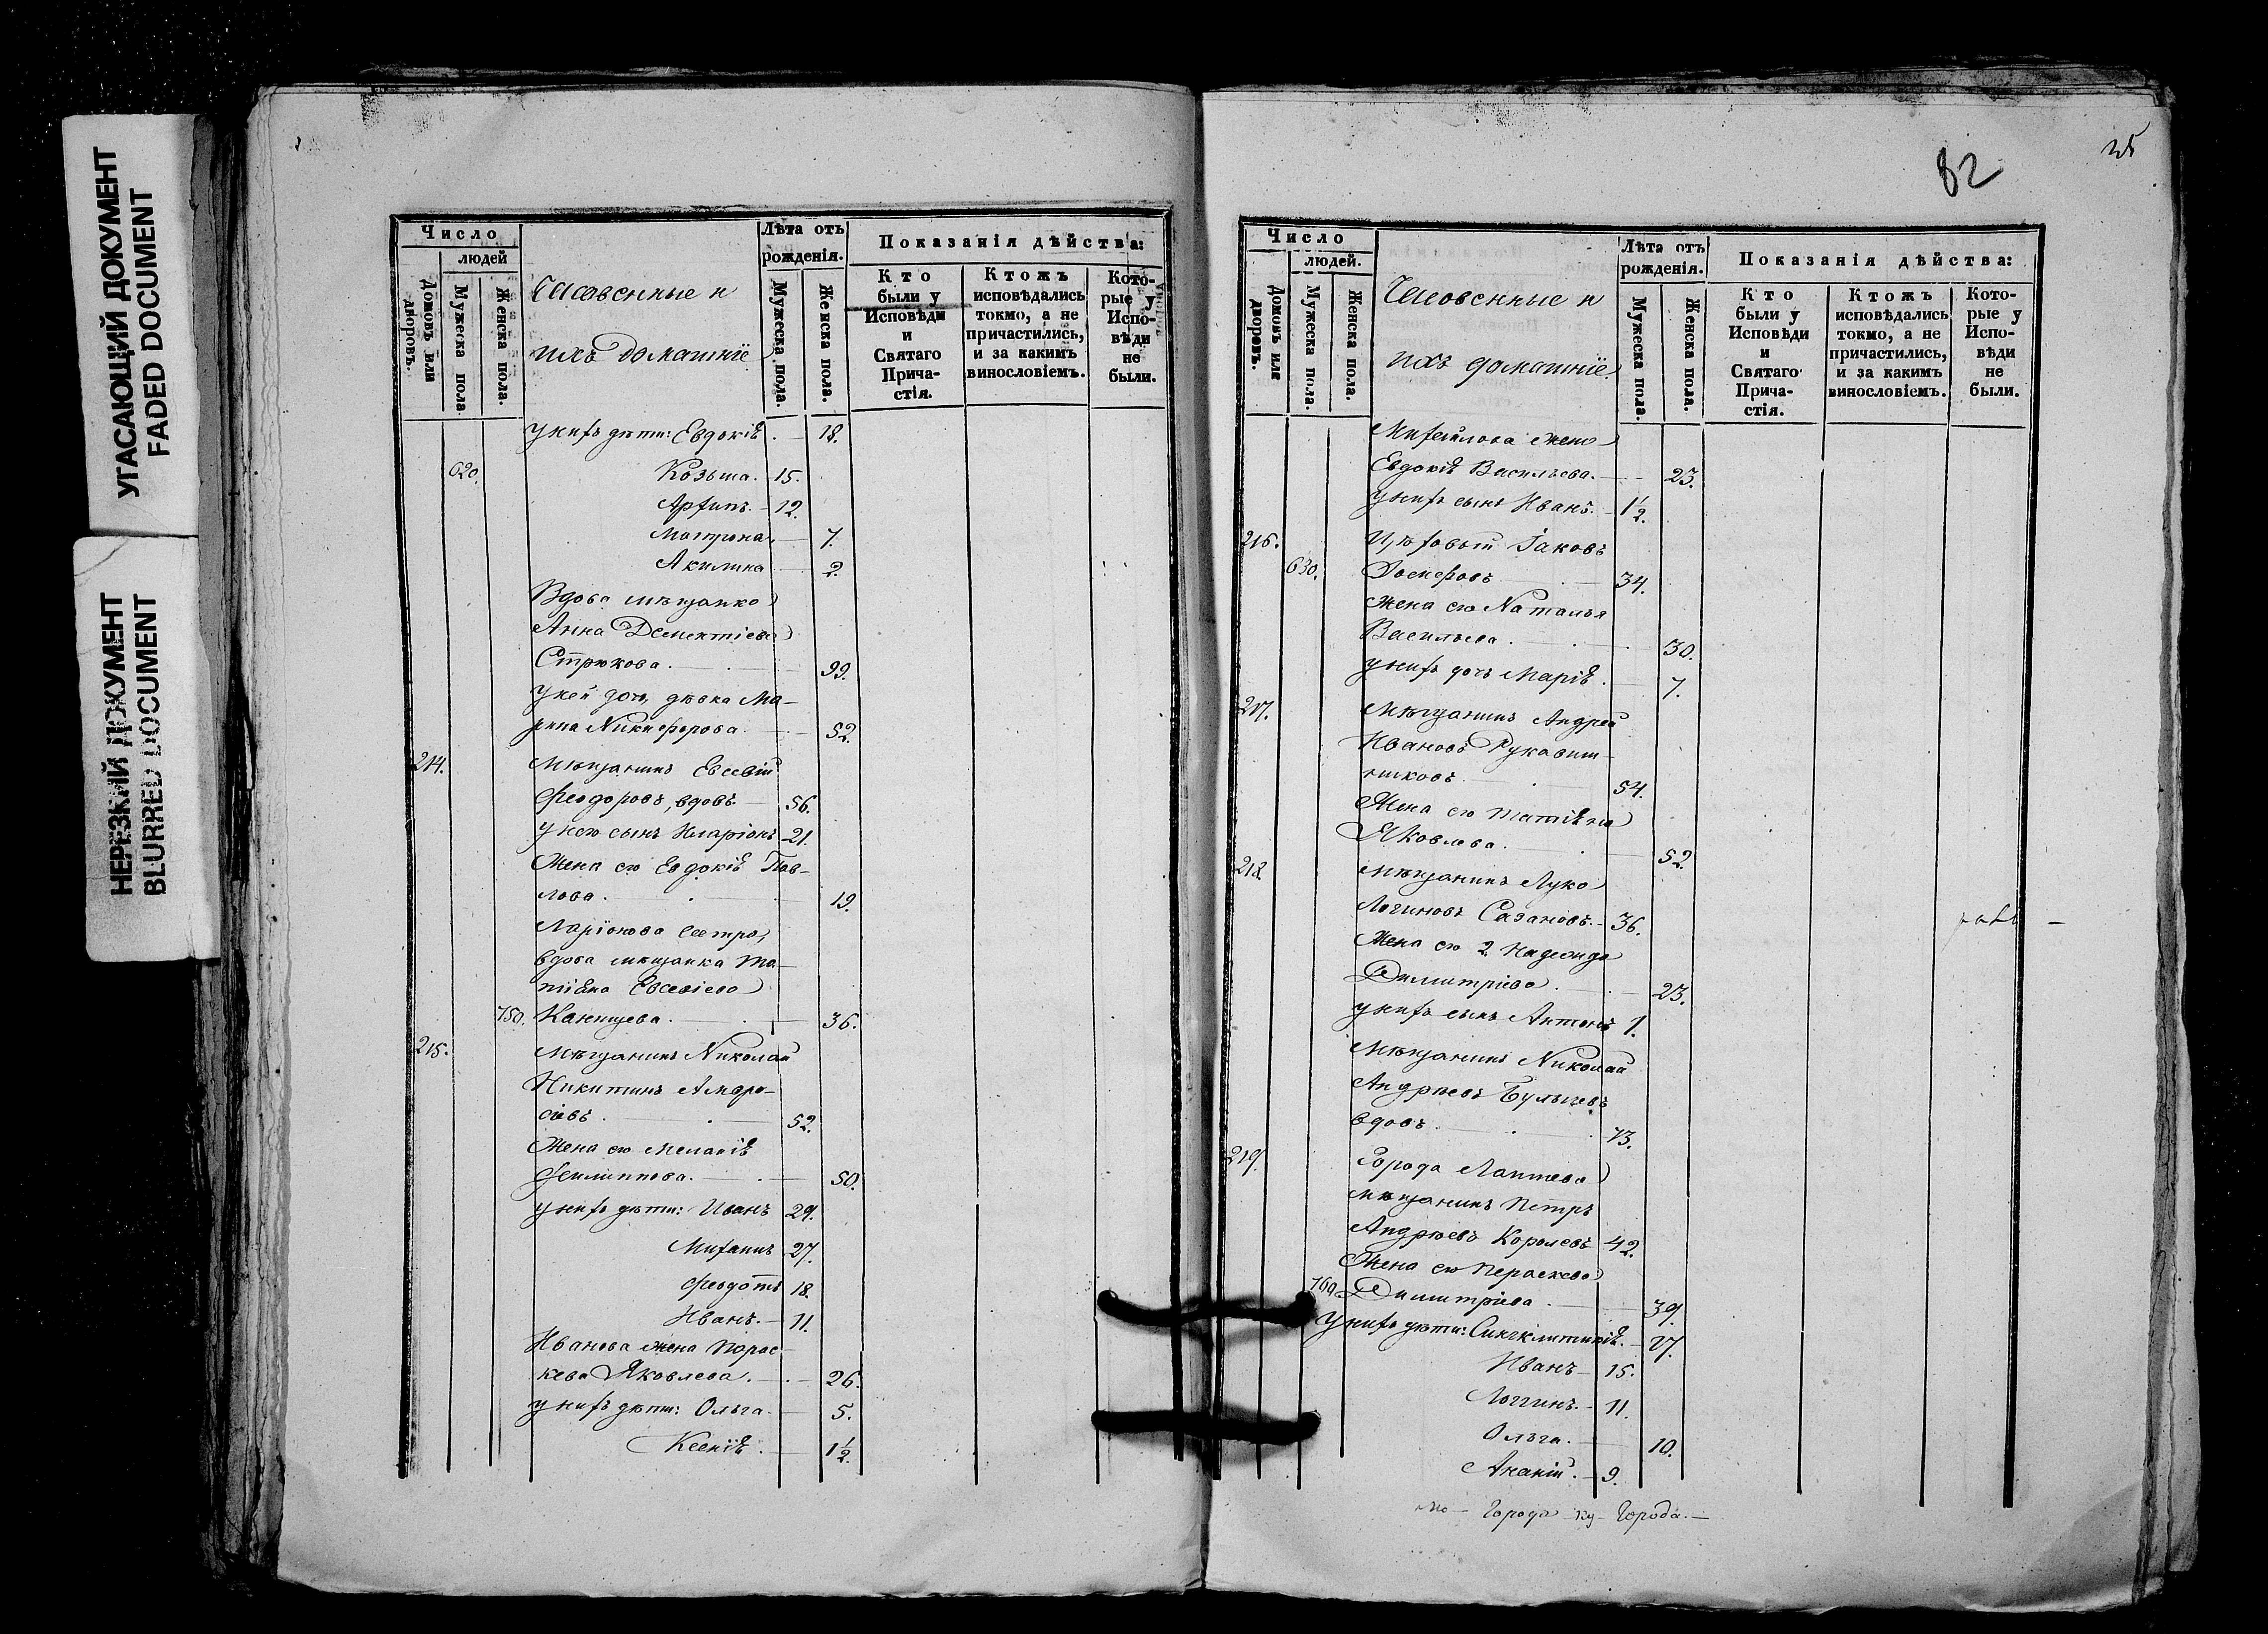 УГАСАЮЩИЙ ДОКУМЕНТ
FADED DOCUMENT
НЕРЕЗКИЙ ДОКУМЕНТ
BLURRED DOCUMENT
Число
людей
Домовъ или дворовъ.
Мужеска пола.
Женска пола.
и
ихъ домашніе
Лѣта отъ рожденія.
Мужеска пола.
Женска пола.
Показанія дѣйства:
Кто были у Исповѣди и Святаго Прича-стія.
Ктожъ исповѣдались токмо, а не причастились, и за какимъ винословіемъ.
Кото-рые у Испо-вѣди не были.
у нихъ дѣти: Евдокія 18.
620. Козьма. 15.
Архипъ. 12.
Матрона 7.
Акилина 2.
Вдова мѣщанка
Анна Дементіева
Стрюкова. 99.
У ней дочь, дѣвка Ма-
рина Никифорова. 52.
214. Мѣщанинъ Евсевій
Феодоровъ, вдовъ 56.
У него сынъ Иларіонъ 21.
Жена его Евдокія Пав-
лова. 19.
Ларіонова сестра,
вдова мѣщанка Та-
тіана Евсевіева
750. Канищева. 36.
215. Мѣщанинъ Николай
Никитинъ Амвро-
сіевъ 52.
Жена его Меланія
Филиппова. 50.
у нихъ дѣти: Иванъ 29.
Михаилъ 27.
Феодотъ 18.
Иванъ. 11.
Иванова жена Парас-
кева Яковлева. 26.
у нихъ дѣти: Ольга. 5.
Ксенія. 1½.
82
Число
людей.
Домовъ или дворовъ.
Мужеска пола.
Женска пола.
и
ихъ домашніе.
Лѣта отъ рожденія.
Мужеска пола.
Женска пола.
Показанія дѣйства:
Кто были у Исповѣди и Святаго Прича-стія.
Ктожъ исповѣдались токмо, а не причастились, и за какимъ винословіемъ.
Кото-рые у Испо-вѣди не были.
Михайлова жена
Евдокія Васильева. 23.
у нихъ сынъ Иванъ. 1½.
216. Цѣховый Іаковъ
630. 34.
Жена его Наталья
Васильева. 30.
у нихъ дочь Марія. 7.
217. Мѣщанинъ Андрей
Ивановъ Рукавиш-
никовъ 54.
Жена его Татіана
Яковлева. 52.
218. Мѣщанинъ Лука
Логиновъ Сазановъ. 36.
Жена его 2 Надежда
Димитріева. 23.
у нихъ сынъ Антонъ 1.
Мѣщанинъ Николай
Андреевъ Булычевъ
вдовъ. 73.
219. Города Лаишева
мѣщанинъ Петръ
Андреевъ Королевъ 42.
Жена его Параскева
760. Димитріева. 39.
У нихъ дѣти: Синклитикія. 17.
Иванъ 15.
Логгинъ. 11.
Ольга. 10.
Ананій. 9.
Города Города.